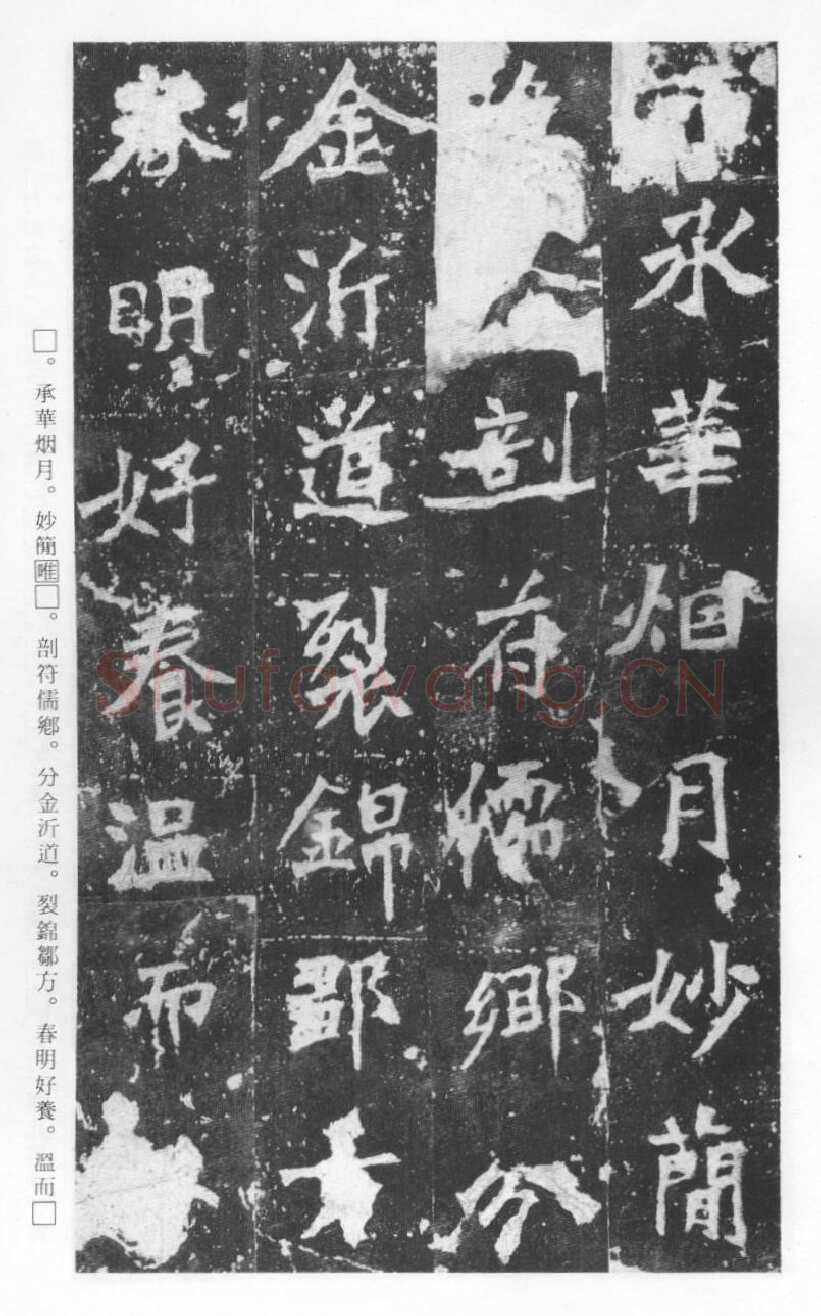 承華烟月妙簡
剖符儒鄉分
金沂道裂錦鄒方
春明好養溫而
□。承華烟月。妙簡唯□。剖符儒鄉。分金沂道。裂錦鄒方。春明好養。溫而□
Shufawang.CN